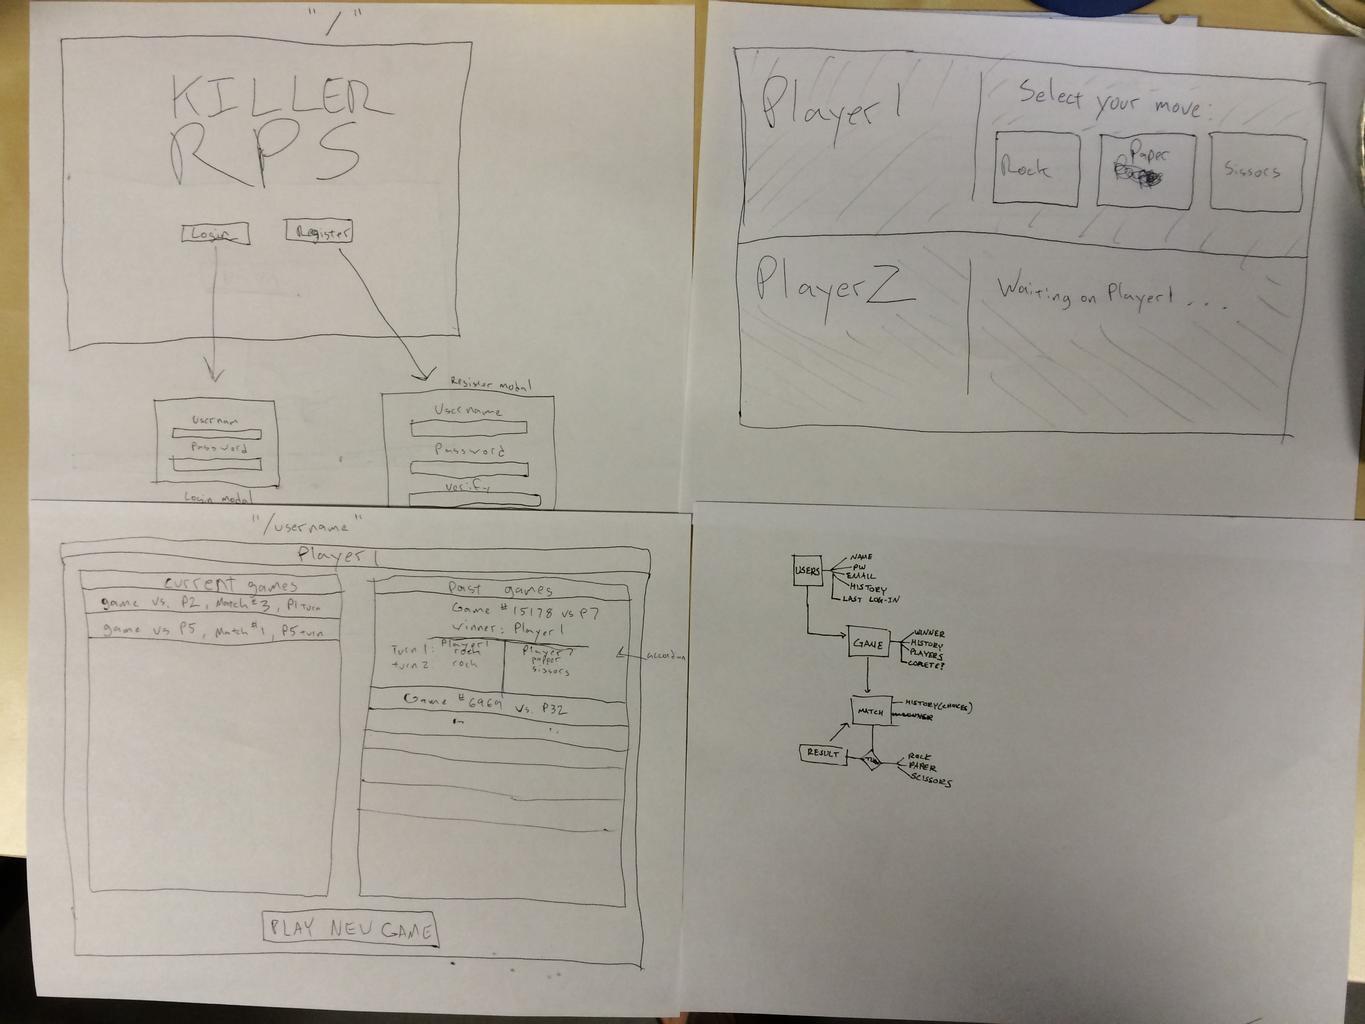 "/"
KILLER
RPS
Login
Register
Register modal
Usernam
Password
Login modal
Username
Password
verify
Player 1
Select your move:
Rock
Paper
Sissors
Player 2
Waiting on Player 1 . . .
"/username"
Player 1
current games
game vs. P2, Match #3, P1 turn
game vs P5, Match #1, P5 turn
Past games
Game #15178 vs P7
winner: Player 1
Player 1
Player 7
Turn 1: rock
papper
turn 2 rock
sissors
Game #6969 vs. P32
PLAY NEW GAME
USERS
NAME
PW
EMAIL
HISTORY
LAST LOG-IN
GAME
WINNER
HISTORY
PLAYERS
COMLETE?
MATCH
HISTORY (CHOICES)
RESULT
ROCK
PAPER
SCISSORS